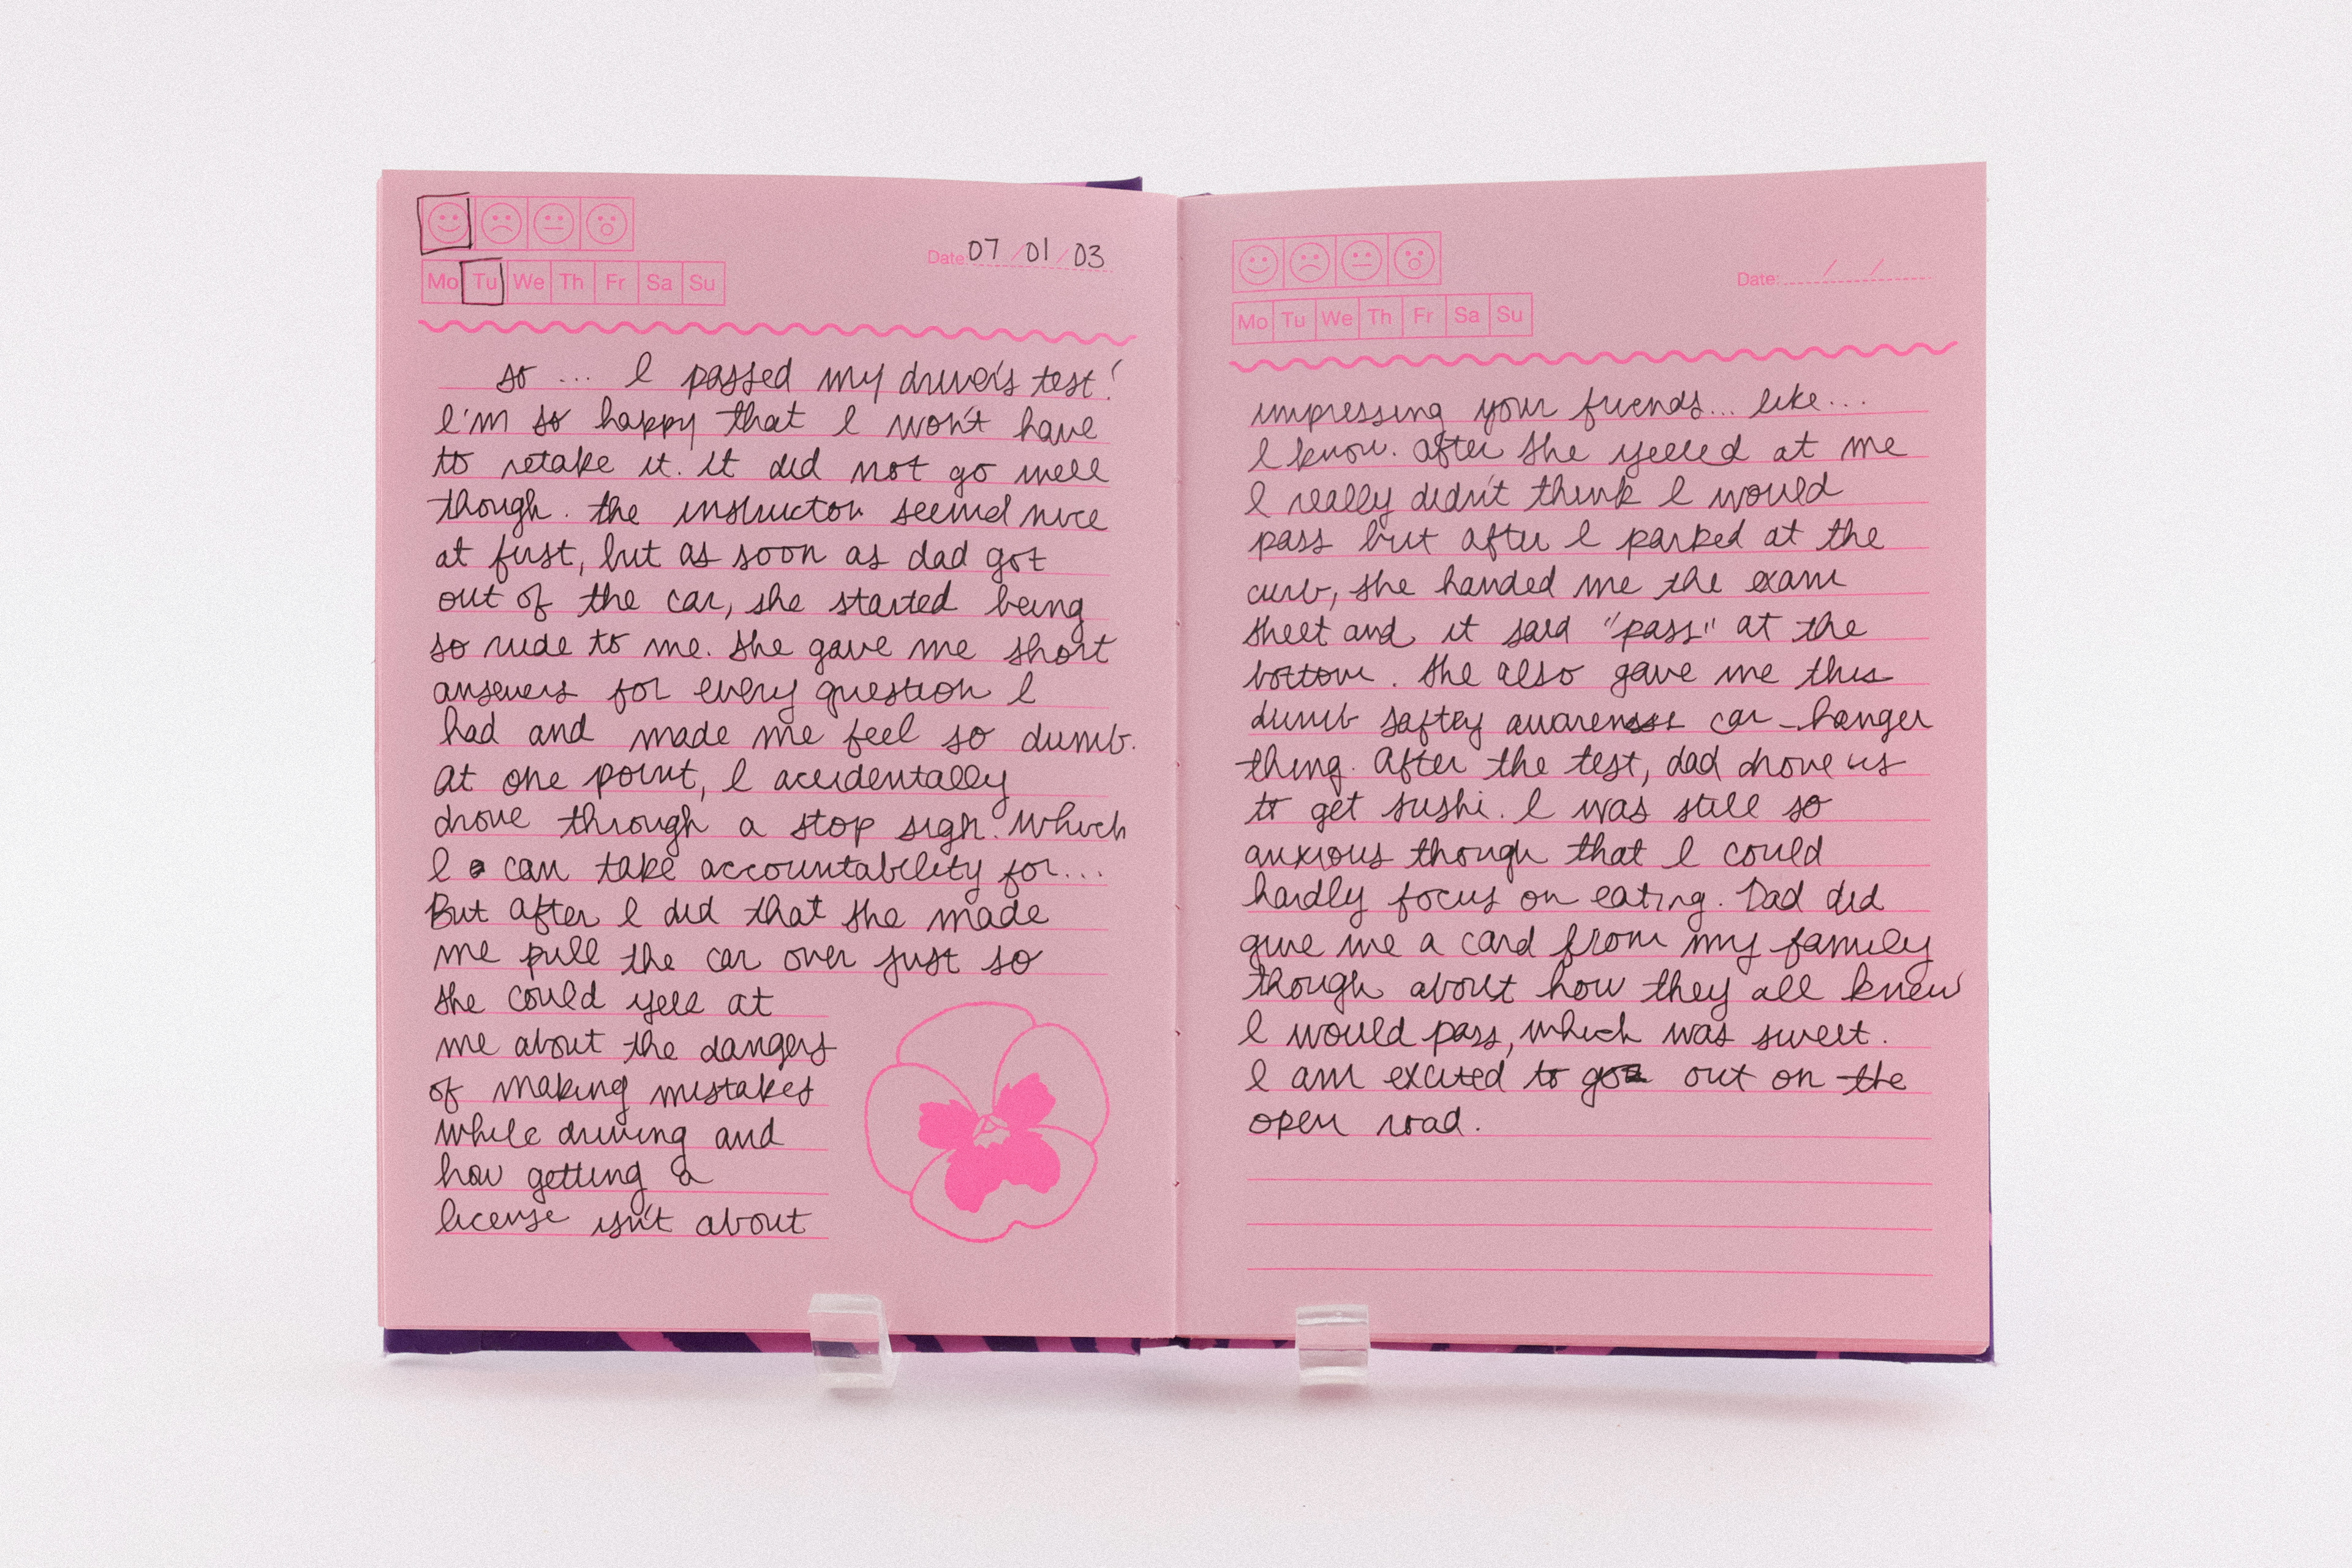 Mo Tu We Th Fr Sa Su
Date: 07/01/03
so ... I passed my driver's test!
I'm so happy that I won't have
to retake it. It did not go well
though. the instructor seemd nice
at first, but as soon as dad got
out of the car, she started being
so rude to me. She gave me short
answers for every question I
had and made me feel so dumb.
At one point, I accidentally
drove through a stop sign. Which
I can take accountability for...
But after I did that she made
me pull the car over just so
she could yell at
me about the dangers
of making mistakes
while driving and
how getting a
license isn't about
Mo Tu We Th Fr Sa Su
Date: / /
impressing your friends... like...
I know. After she yelled at me
I really didn't think I would
pass but after I parked at the
curb, she handed me the exam
sheet and it said "pass" at the
bottom. She also gave me this
dumb saftey awareness car-hanger
thing. After the test, dad drove us
to get sushi. I was still so
anxious though that I could
hardly focus on eating. Dad did
give me a card from my family
though about how they all knew
I would pass, which was sweet.
I am excited to go out on the
open road.